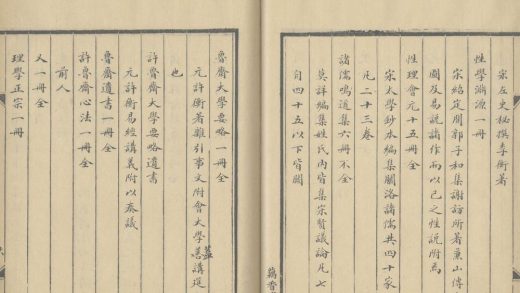 宋左史祕撰李衡著
性學淵源一冊
宋紹定間郭子和集謝訪所著兼山傳
圖及易說諸作而以己之性説附焉
性理會元十五冊全
宋太學鈔本編集關洛諸儒共四十家
凡二十三卷
諸儒鳴道集六冊不全
莫詳編集姓氏内皆集宋賢議論凡七
自四十五以下皆闕
魯齋大學要略一冊全
元許衡著雜引事文附會大學蓋講進
也
許魯齋大學要略遺書
元許衡易經講義附以奏議
魯齋遺書一冊全
許魯齋心法一冊全
前人
又一冊全
理學正宗一冊